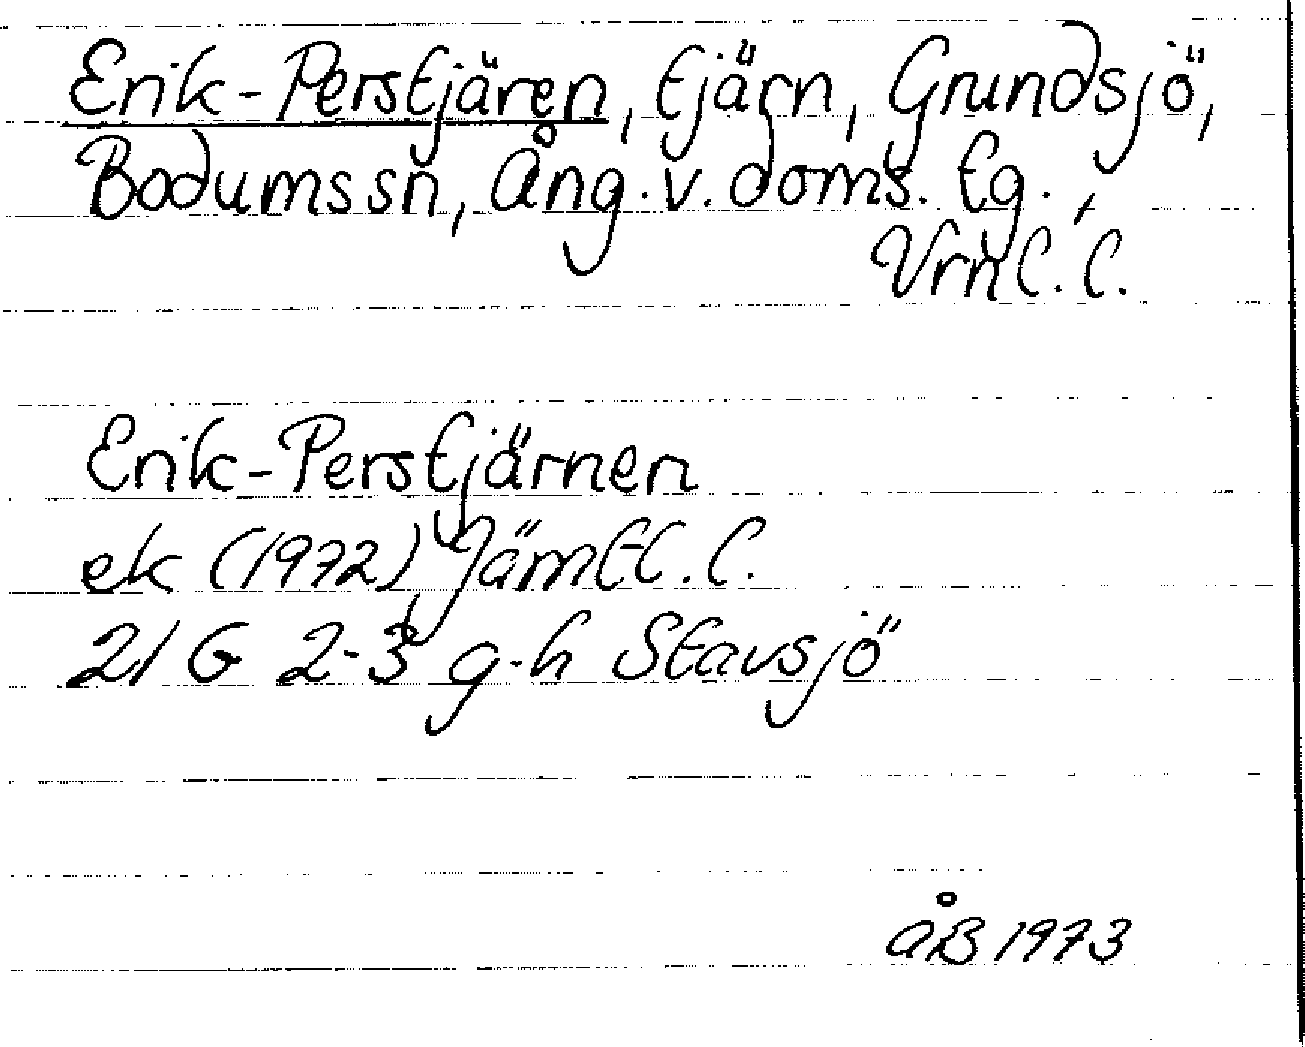 Erik-Perstjären, tjärn, Grundsjö,
Bodumssn, Ång. v. doms. tg.,
Vrnl. l.
Erik-Perstjärnen
ek (1972), Jämtl. l.
21 G 2-3 g-h Stavsjö
åB 1973